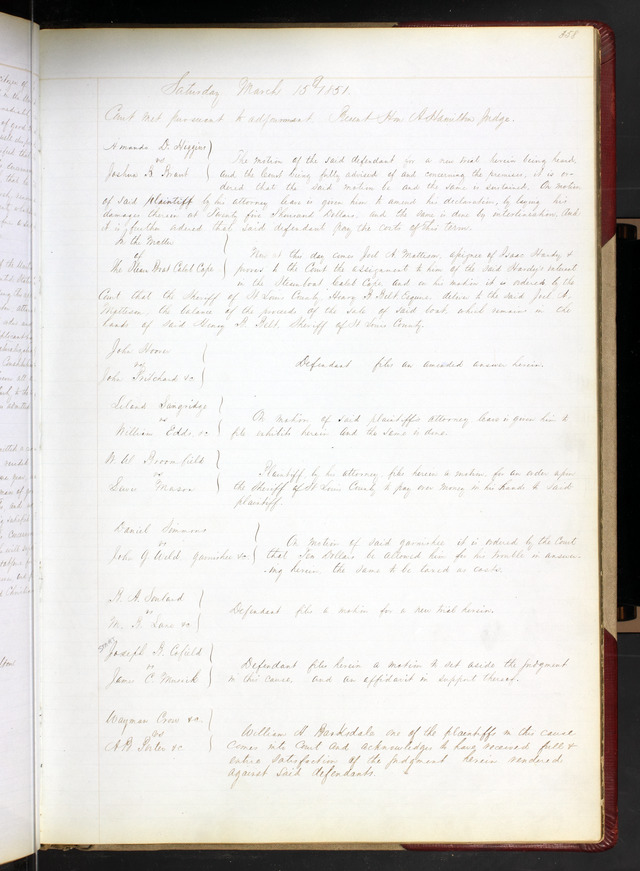 358
Saturday March 15th 1851.
Court met pursuant to adjournment. Present Hon A Hamilton Judge.
Amanda D. Higgins
vs
Joshua B. Brant
The motion of the said defendant for a new trial herein being heard,
and the Court being fully advised of and concerning the premises, it is or-
dered that the said motion be and the same is sustained. On motion
of said plaintiff by his attorney leave is given him to amend his declaration, by laying his
damages therein at Twenty five Thousand Dollars, and the same is done by interlineation, And
it is further ordered that said defendant pay the costs of this term.
In the Matter
of
The Steam Boat Caleb Cope
Now at this day comes Joel A. Matteson, assignee of Isaac Hardy &
proves to the Court the assignment to him of the said Hardy's interest
in the Steamboat Caleb Cope, and on his motion it is ordered by the
Court that the Sheriff of St Louis County, Henry B. Belt Esquire, deliver to the said Joel A.
Matteson, the balance of the proceeds of the sale of said boat, which remain in the
hands of said Henry B. Belt, Sheriff of St Louis County.
John Hoover
vs
John Pritchard &c
Defendant files an amended answer herein.
Leland Langridge
vs
William Edds &c
On motion of said plaintiffs attorney leave is given him to
file exhibits herein and the same is done.
W. W. Broomfield
vs
Mason
Plaintiff by his attorney files herein a motion for an order upon
the Sheriff of St Louis County to pay over money in his hands to said
plaintiff.
Daniel Simmons
vs
John Y. Wild garnishee &c
On motion of said garnishee it is ordered by the Court
that Ten Dollars be allowed him for his trouble in answer-
-ing herein, the same to be taxed as costs.
vs
M. Lane &c
Defendant files a motion for a new trial herein.
Joseph G. Cofield
vs
James C.
Defendant files herein a motion to set aside the judgment
in this cause and an affidavit in support thereof.
Wayman Crow &c.
vs
A. W. Porter &c
William H. Barksdale one of the plaintiffs in this cause
comes into Court and acknowledges to have received full &
entire satisfaction of the judgment herein rendered
against said defendants.